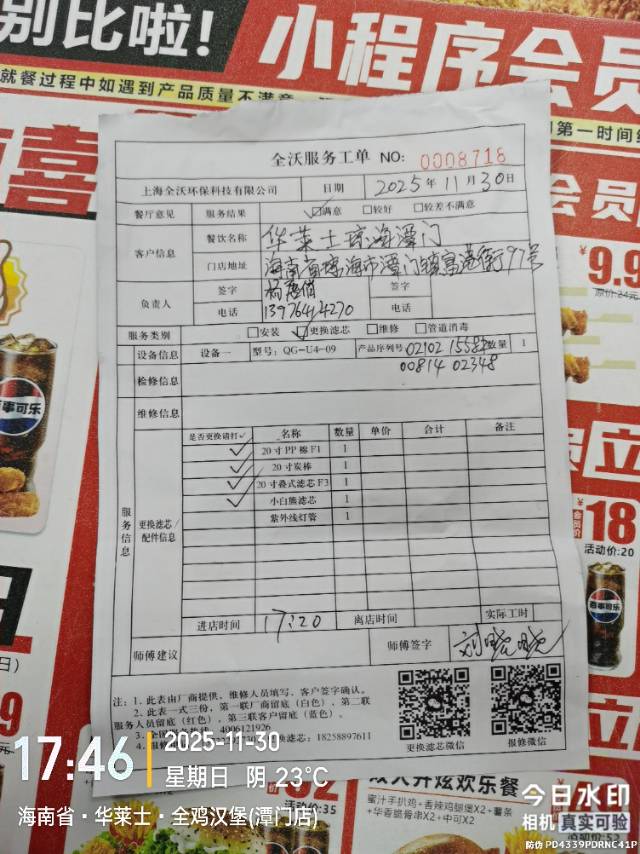 别比啦!
小程序会员
就餐过程中如遇到产品质量不满意
第一时间
喜
员
会员
¥9.9
原价:24元
全沃服务工单 NO: 0008718
上海全沃环保科技有限公司 日期 2025年11月30日
餐厅意见 服务结果 ☑满意 □较好 □较差不满意
客户信息 餐饮名称 华莱士琼海潭门
门店地址 海南省琼海市潭门镇富港街97号
负责人 签字 签字
电话 13976414270 电话
服务类别 □安装 ☑更换滤芯 □维修 □管道消毒
设备信息 设备一 型号: QG-U4-09 产品序列号 02102 15584 数量 1
00814 02348
检修信息
维修信息
服务信息
更换滤芯/配件信息
是否更换请打✓ 名称 数量 单价 合计 备注
✓ 20寸PP棉F1 1
✓ 20寸炭棒 1
✓ 20寸叠式滤芯F3 1
✓ 小白熊滤芯 1
紫外线灯管 1
进店时间 17:20 离店时间 实际工时
师傅建议 师傅签字 刘晓晓
注: 1. 此表由厂商提供, 维修人员填写, 客户签字确认。
2. 此表一式三份, 第一联厂商留底 (白色), 第二联
服务人员留底 (红色), 第三联客户留底 (蓝色)。
4006121926
更换滤芯: 18258897611
更换滤芯微信 报修微信
百事可乐
立
会员价
¥18
活动价:20
百事可乐
日)
活动价:35
欢乐餐
蜜汁手扒鸡+香辣鸡腿堡X2+薯条
+华香脆骨串X2+中可X2
17:46
2025-11-30
星期日 阴 23℃
海南省·华莱士·全鸡汉堡(潭门店)
今日水印
相机 真实可验
防伪 PD4339PDRNC41P